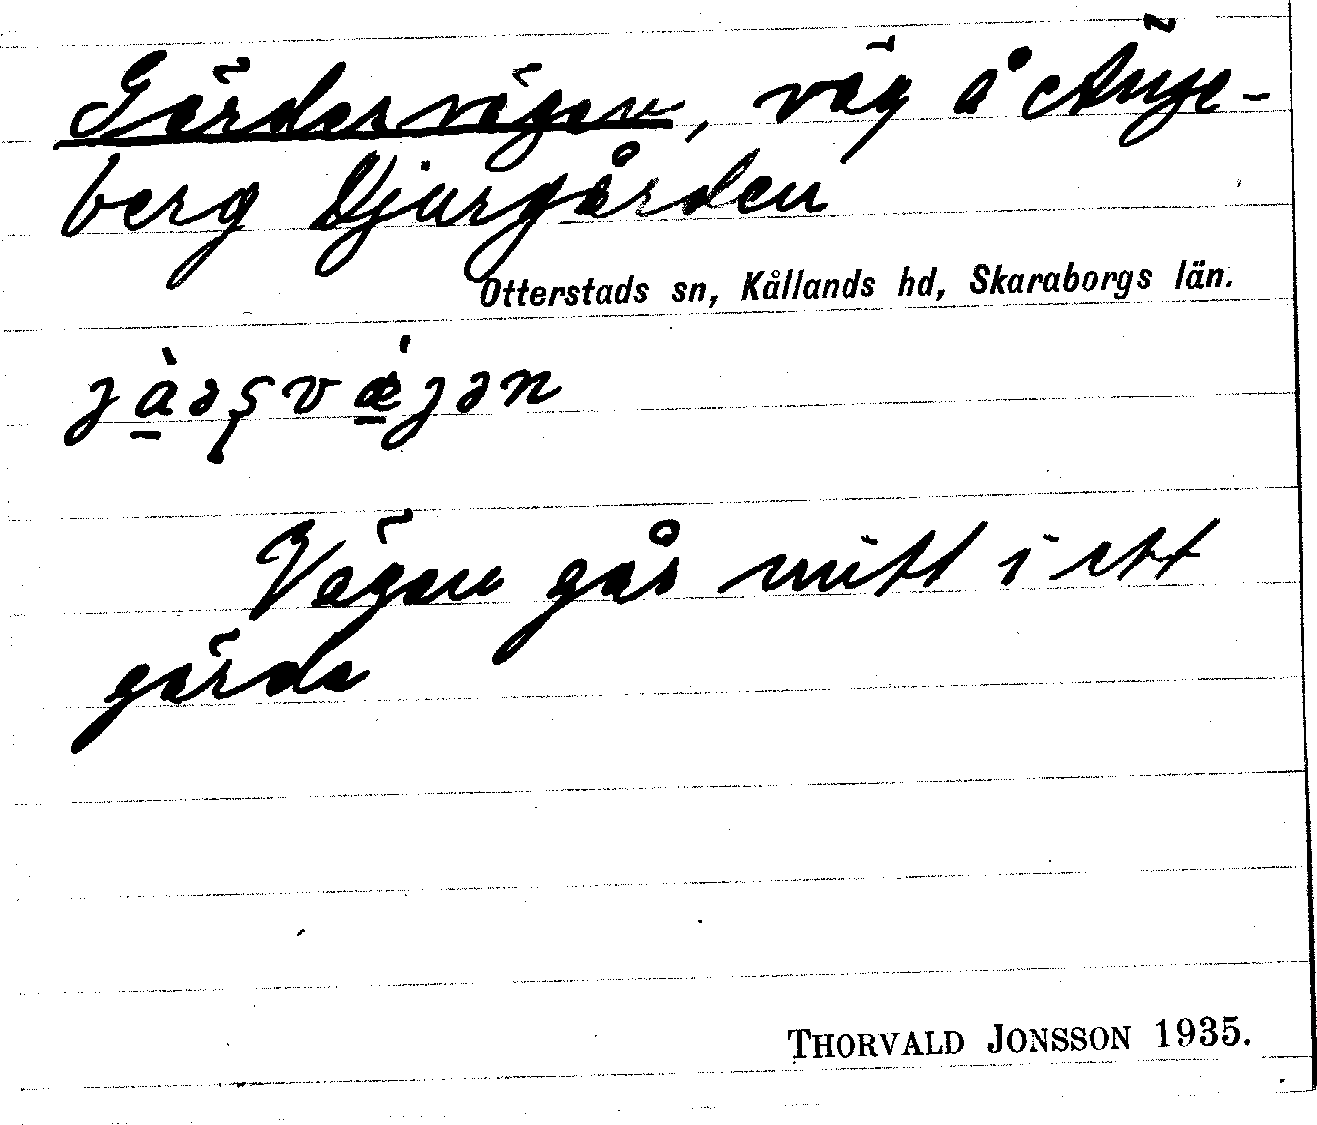 Gärdesvägen, väg å Änge-
berg Djurgården
Otterstads sn, Kållands hd, Skaraborgs län.
Vägen går mitt i ett
gärde
THORVALD JONSSON 1935.